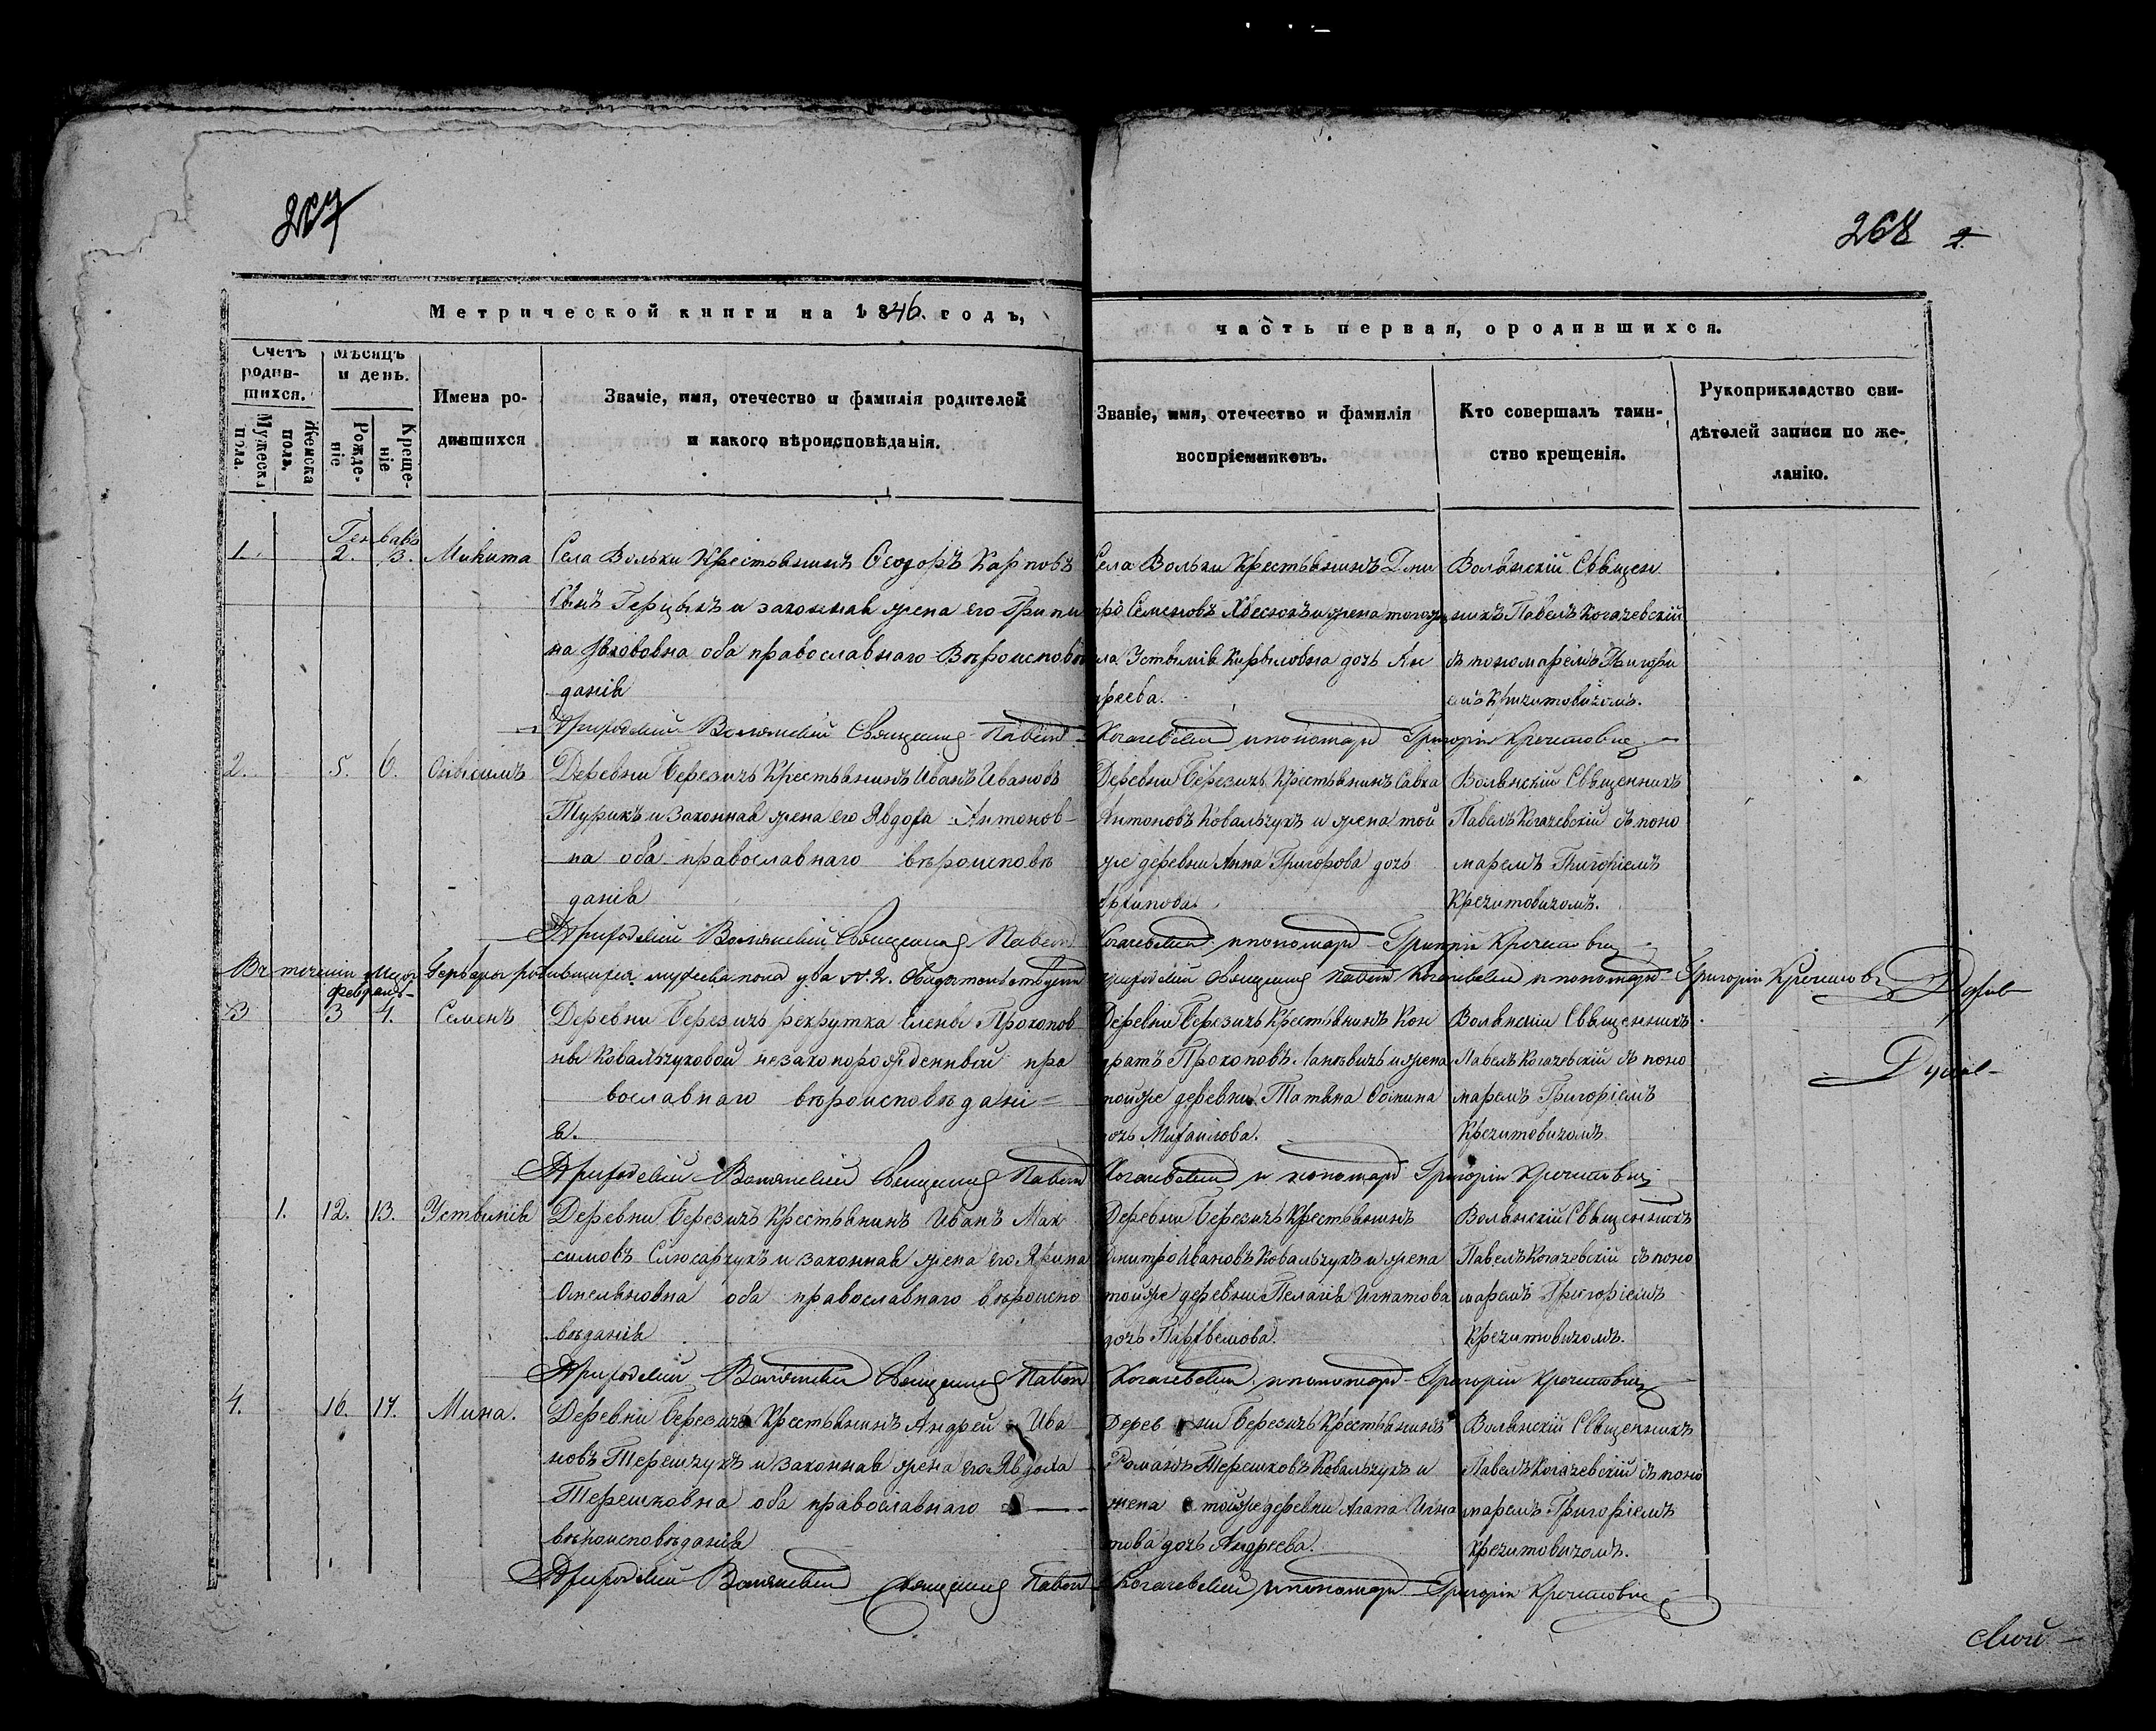 267
268 2.
Метрической книги на 1846. годъ,
часть первая, ородившихся.
Счетъ родив-шихся.
Мужеска пола.
Женска полъ.
Мѣсяцъ и день.
Рожде-ніе
Креще-ніе
Имена ро-
дившихся
Званіе, имя, отечество и фамилія родителей
и какого вѣроисповѣданія.
Званіе, имя, отечество и фамилія
воспріемниковъ.
Кто совершалъ таин-
ство крещенія.
Рукоприкладство сви-
дѣтелей записи по же-
ланію.
Генваръ
1. 2. 3. Микита
Села Вольки Крестьянинъ Феодоръ Карповъ
Сынъ Герцыкъ и законная жена его
на оба православнаго Вѣроисповѣ
данія
Села Вольки Крестьянинъ Дми
тро Семеновъ и жена тогоже
ла Устимія Кирыловна дочь Ан
дреева.
Волянскій Священ
никъ Павелъ Когачевскій
съ пономаремъ Григорі
емъ Кречитовичомъ.
Приходскій Волянский Священникъ Павелъ Когачевский и пономарь Григорій Кречитовичъ
2. 5. 6. Онисимъ
Деревни Березичъ Крестьянинъ Иванъ Ивановъ
Турикъ и законная жена его Явдоха Антонов-
на оба православнаго вѣроисповѣ
данія
Деревни Березичъ Крестьянинъ Савка
Антоновъ Ковальчукъ и жена той
же деревни Анна Григорова дочь
Волянскій Священникъ
Павелъ Когачевскій съ поно
маремъ Григоріемъ
Кречитовичомъ.
Приходскій Волянский Священникъ Павелъ Когачевский и пономарь Григорій Кречитовичъ
Въ теченіи Генваря родившихся мужеска пола два № 2. приходскій Священникъ Павелъ Когачевский и пономарь Григорій Кречитов
Февраль
3 3 4. Семенъ
Деревни Березичъ рекрутка Елены Прокопов-
ны Ковальчуковой незаконорожденный пра
вославнаго вѣроисповѣдані-
я.
Деревни Березичъ Крестьянинъ Кон
дратъ Прокоповъ и жена
тойже деревни Татьяна
дочь Михаилова.
Волянскій Священникъ
Павелъ Когачевскій съ поно
маремъ Григоріемъ
Кречитовичомъ
Приходскій Волянский Священникъ Павелъ Когачевский и пономарь Григорій Кречитовичъ
1. 12. 13. Устинія
Деревни Березичъ Крестьянинъ Иванъ Мак
симовъ Слюсарчукъ и законная жена его Ярина
Омельяновна оба православнаго вѣроиспо
вѣданія
Деревни Березичъ Крестьянинъ
Дмитро Ивановъ Ковальчукъ и жена
тойже деревни Пелагія Игнатова
дочь
Волянскій Священникъ
Павелъ Когачевскій съ поно
маремъ Григоріемъ
Кречитовичомъ.
Приходскій Волянский Священникъ Павелъ Когачевский и пономарь Григорій Кречитовичъ
4. 16. 17. Мина.
Деревни Березичъ Крестьянинъ Андрей Ива
новъ Терешчукъ и законная жена его Явдоха
Терешковна оба православнаго
вѣроисповѣданія
Дерев ни Березичъ Крестьянинъ
Романъ Терешковъ Ковальчукъ и
жена тойже деревни Агапа Игна
това дочь Андреева.
Волянскій Священникъ
Павелъ Когачевскій съ поно
маремъ Григоріемъ
Кречитовичомъ.
Приходскій Волянский Священникъ Павелъ Когачевский и пономарь Григорій Кречитовичъ